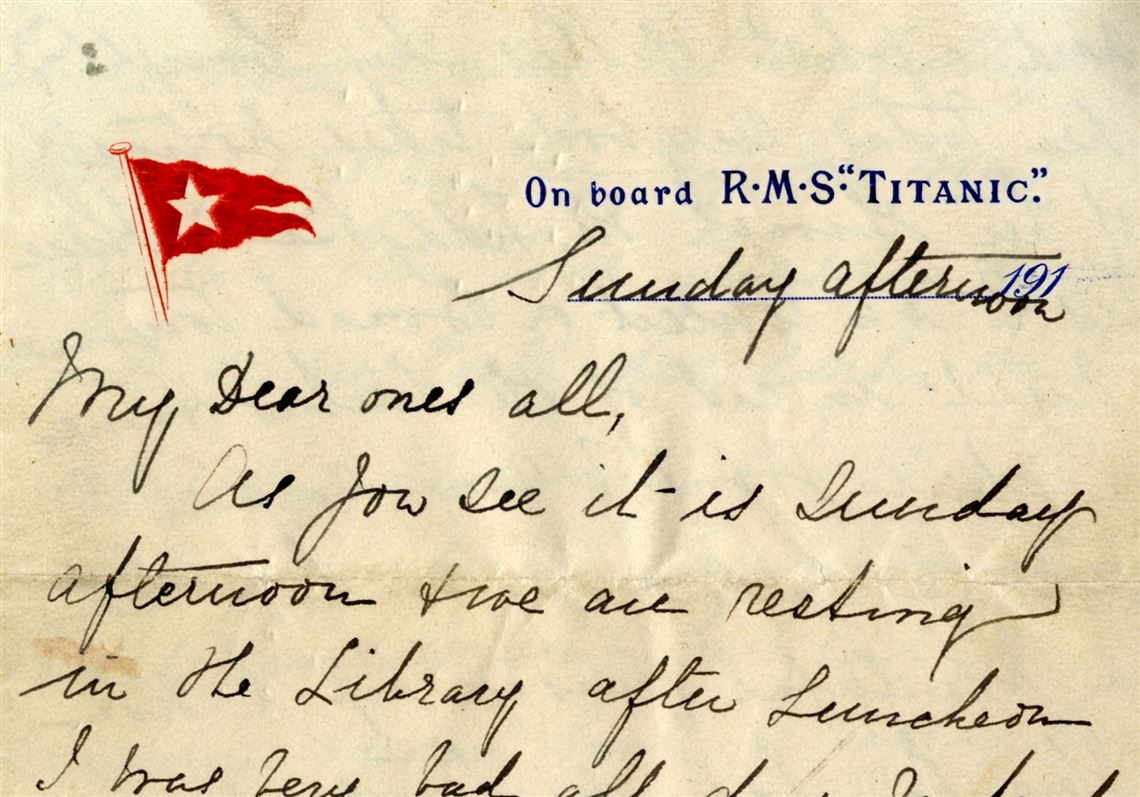 On board R·M·S·"TITANIC."
Sunday afternoon 191
My Dear ones all,
As you see it is Sunday
afternoon & we are resting
in the Library after Luncheon
I was very bad all day